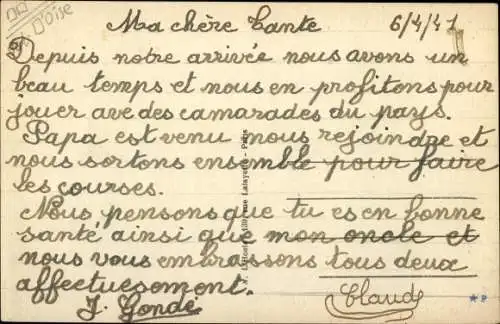 D'Oise
Ma chère Tante 6/4/41
Depuis notre arrivée nous avons un
beau temps et nous en profitons pour
jouer ave des camarades du pays.
Papa est venu nous rejoindre et
nous sortons ensemble pour faire
les courses.
Nous pensons que tu es en bonne
santé ainsi que mon oncle et
nous vous embrassons tous deux
affectueusement.
J. Gondé Claude
Lafayette - Paris